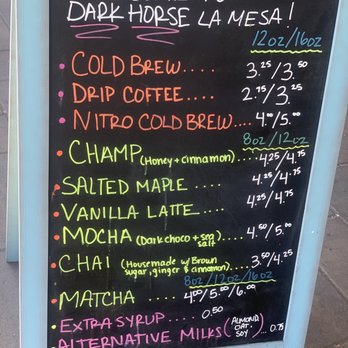 DARK HORSE LA MESA!
12oz/16oz
• COLD BREW.... 3.25/3.50
• DRIP COFFEE.... 2.75/3.25
• NITRO COLD BREW.... 4.00/5.00
8oz/12oz
• CHAMP (Honey + cinnamon).... 4.25/4.75
• SALTED MAPLE.... 4.25/4.75
• VANILLA LATTE.... 4.25/4.75
• MOCHA (Dark choco + sea salt).... 4.50/5.00
• CHAI (Housemade w/ Brown sugar, ginger & cinnamon).... 3.50/4.25
8oz/12oz/16oz
• MATCHA.... 4.00/5.00/6.00
• EXTRA SYRUP.... 0.50
• ALTERNATIVE MILKS (ALMOND OAT SOY).. 0.75